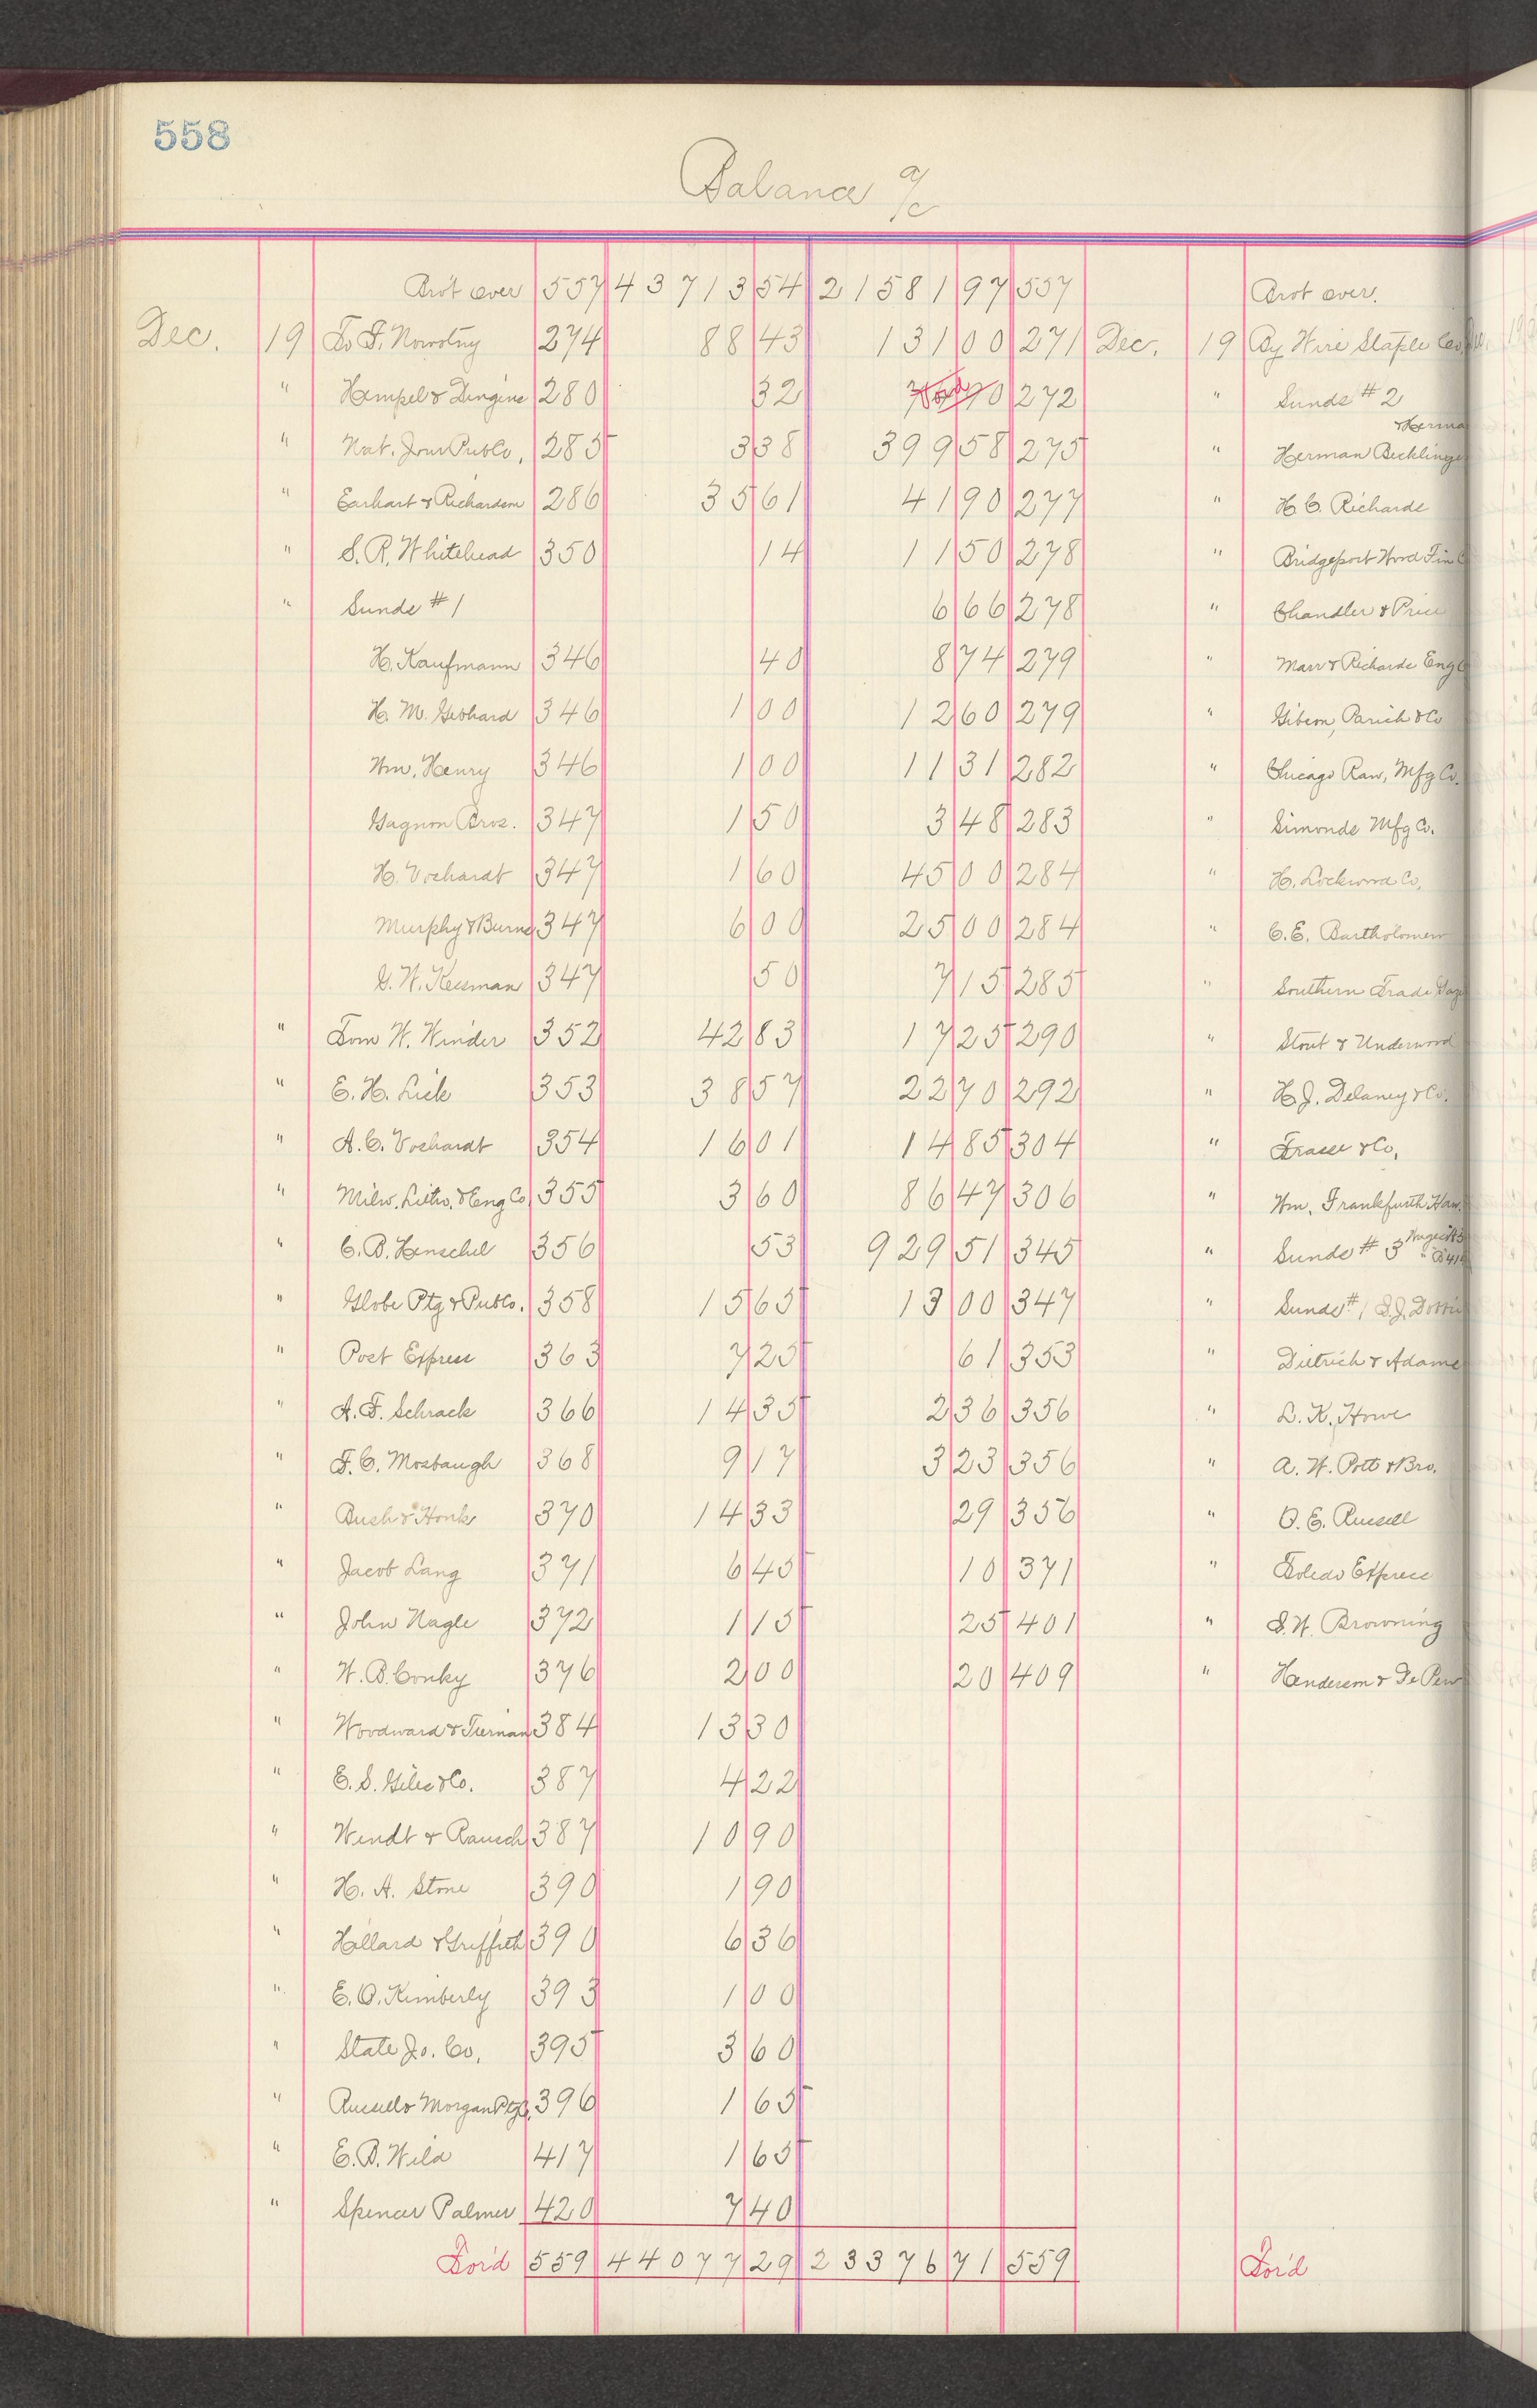 558
Balance a/c
Brot over 557 43713 54 21581 97 557 Brot over.
Dec. 19 To F. Nowotny 274 88 43 131 00 271 Dec. 19 By Wire Staple Co.
" Hempel & Dingine 280 32 272 " Sunds #2
" Nat. Jour Pub Co. 285 3 38 399 58 275 " Herman Becklinge
" Earhart & Richardson 286 35 61 41 90 277 " H. C. Richards
" S. R. Whitehead 350 14 11 50 278 " Bridgeport Wood Fin
" Sunds #1 6 66 278 " Chandler & Price
H. Kaufmann 346 40 8 74 279 " Marr & Richards Eng
H. M. Gebhard 346 1 00 12 60 279 " Gibson, Parish & Co
Wm. Henry 346 1 00 11 31 282 " Chicago Raw. Mfg Co.
Gagnon Bros. 347 1 50 3 48 283 " Simonds Mfg Co.
H. Voshardt 347 1 60 45 00 284 " H. Lockwood Co.
Murphy & Burns 347 6 00 25 00 284 " C. E. Bartholomew
G. W. Kessman 347 50 7 15 285 " Southern Trade Gaz
" Tom W. Winder 352 42 83 17 25 290 " Stout & Underwood
" E. H. Lisk 353 38 57 22 70 292 " H. J. Delaney & Co.
" A. C. Voshardt 354 16 01 14 85 304 " Frasse & Co.
" Milw. Litho. & Eng Co 355 3 60 86 47 306 " Wm. Frankfurth Haw.
" C. B. Henschel 356 53 929 51 345 " Sunds #3
" Globe Ptg & Pub Co. 358 15 65 13 00 347 " Sunds #1
" Post Express 363 7 25 61 353 " Dietrich & Adams
" A. F. Schrack 366 14 35 2 36 356 " L. K. Howe
" F. C. Mosbaugh 368 9 17 3 23 356 " A. W. Pott & Bro.
" Bush & Honk 370 14 33 29 356 " O. E. Russell
" Jacob Lang 371 6 45 10 371 " Toledo Express
" John Nagle 372 1 15 25 401 " S. W. Browning
" W. B. Conky 376 2 00 20 409 " Henderson & De Pew
" Woodward & Tiernan 384 13 30
" E. S. Giles & Co. 387 4 22
" Wendt & Rausch 387 10 90
" H. A. Stone 390 1 90
" Hallard & Griffith 390 6 36
" E. O. Kimberly 393 1 00
" State Jo. Co. 395 3 60
" Russell & Morgan Ptg 396 1 65
" E. B. Wild 417 1 65
" Spencer Palmer 420 7 40
For'd 559 44077 29 23376 71 559 For'd